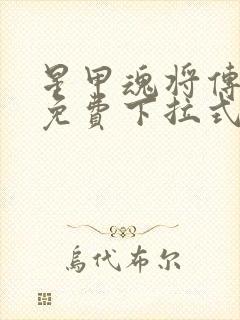 星甲魂将傳
免費下拉式
烏代布尔